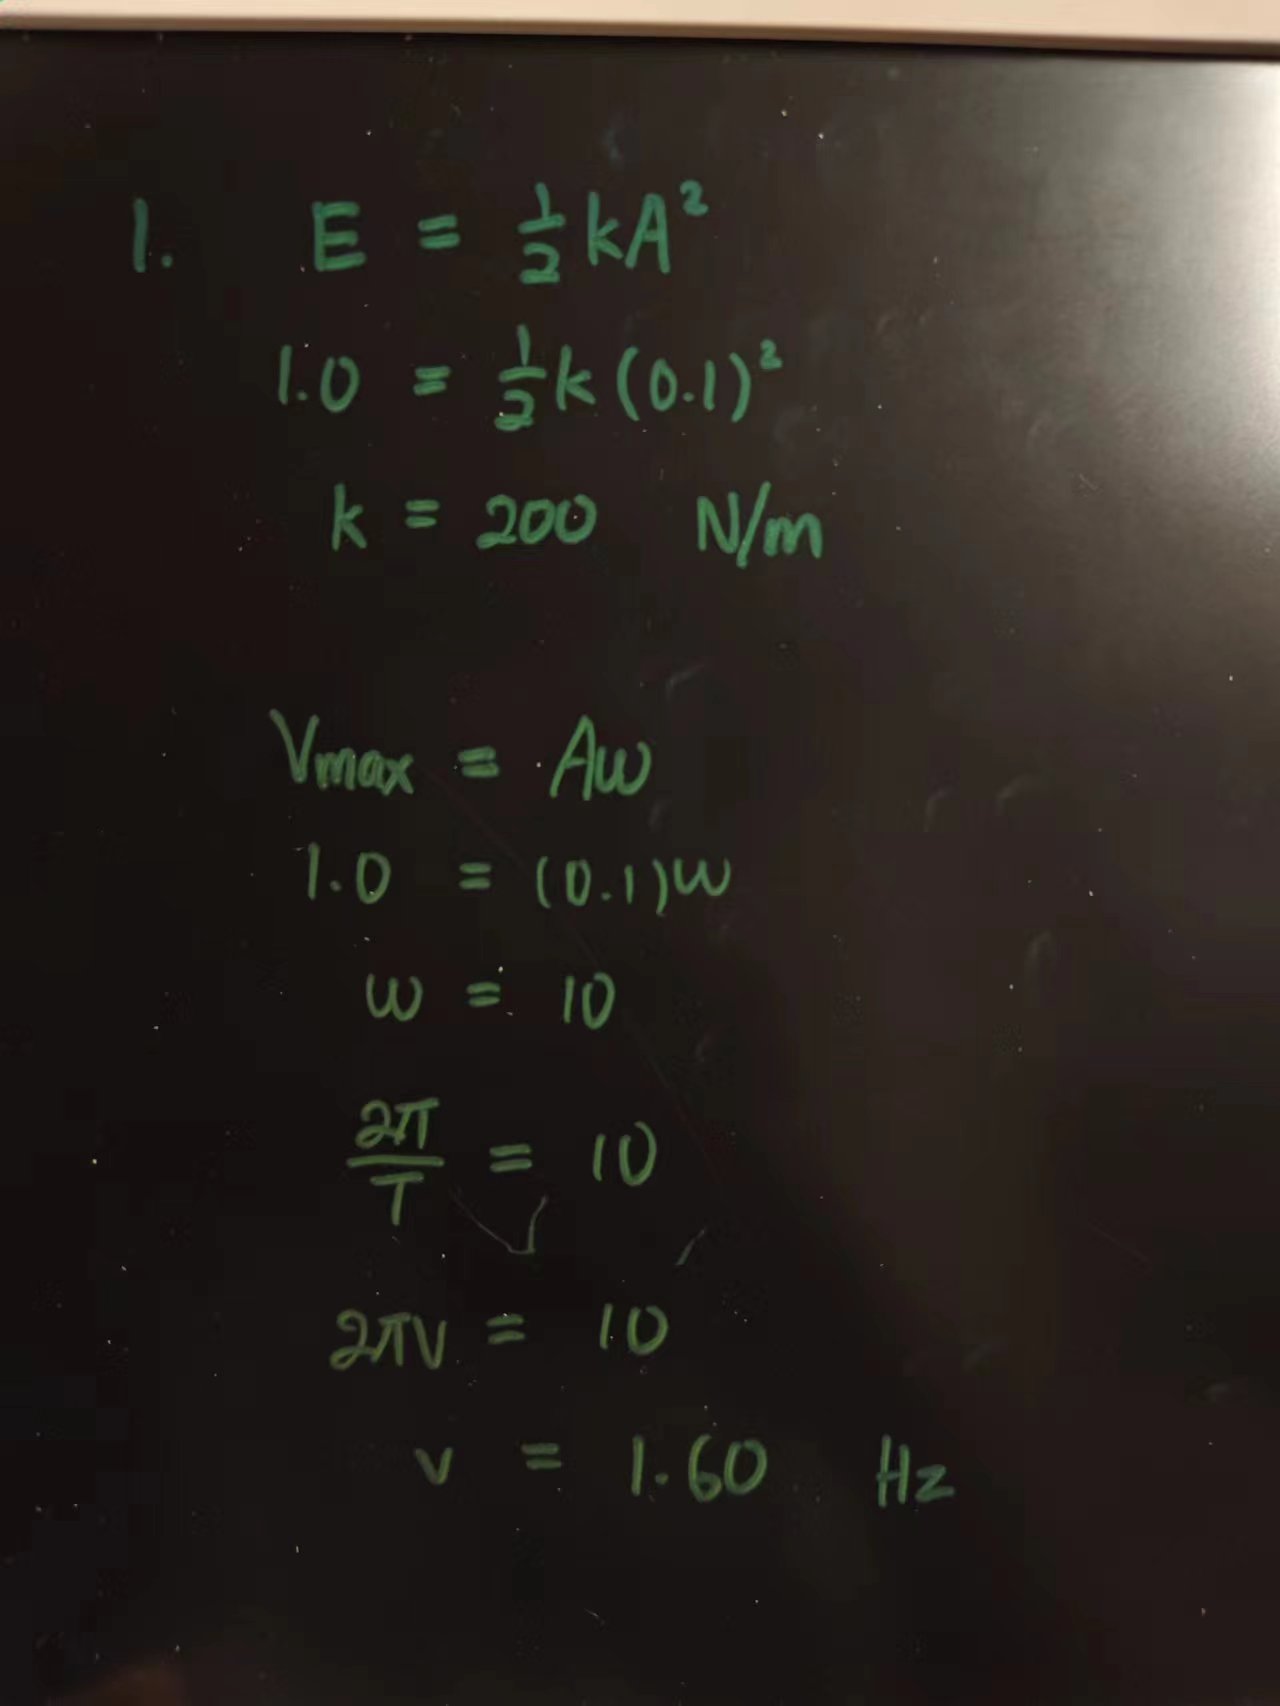 1. E = ½kA²
1.0 = ½k(0.1)²
k = 200 N/m
Vmax = Aω
1.0 = (0.1)ω
ω = 10
2π/T = 10
2πν = 10
ν = 1.60 Hz